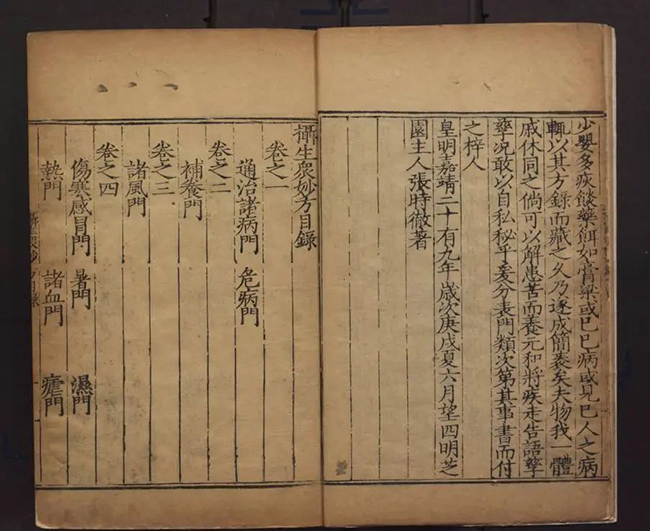 少嬰多疾餤藥餌如膏粱或已已病或見已人之病
輒以其方錄而藏之久乃遂成簡袠矣夫物我一體
戚休同之倘可以解患苦而養元和將疾走告語孳
孳況敢以自私秘乎爰分表門類次第其事書而付
之梓人
皇明嘉靖二十有九年歲次庚戌夏六月望四明芝
園主人張時徹著
攝生眾妙方目錄
卷之一
通治諸病門 危病門
卷之二
補養門
卷之三
諸風門
卷之四
傷寒感冒門 暑門 濕門
熱門 諸血門 瘧門